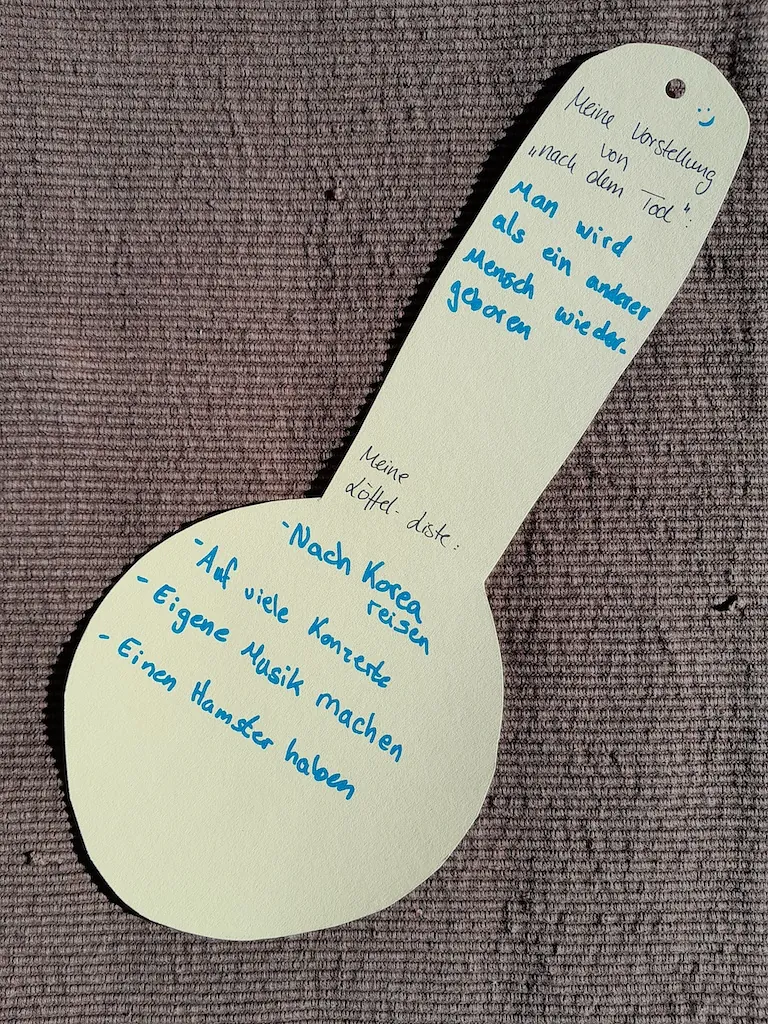 Meine Vorstellung
von
„nach dem Tod":
Man wird
als ein anderer
Mensch wieder-
geboren
Meine
Löffel-Liste:
- Nach Korea
reisen
- Auf viele Konzerte
- Eigene Musik machen
- Einen Hamster haben